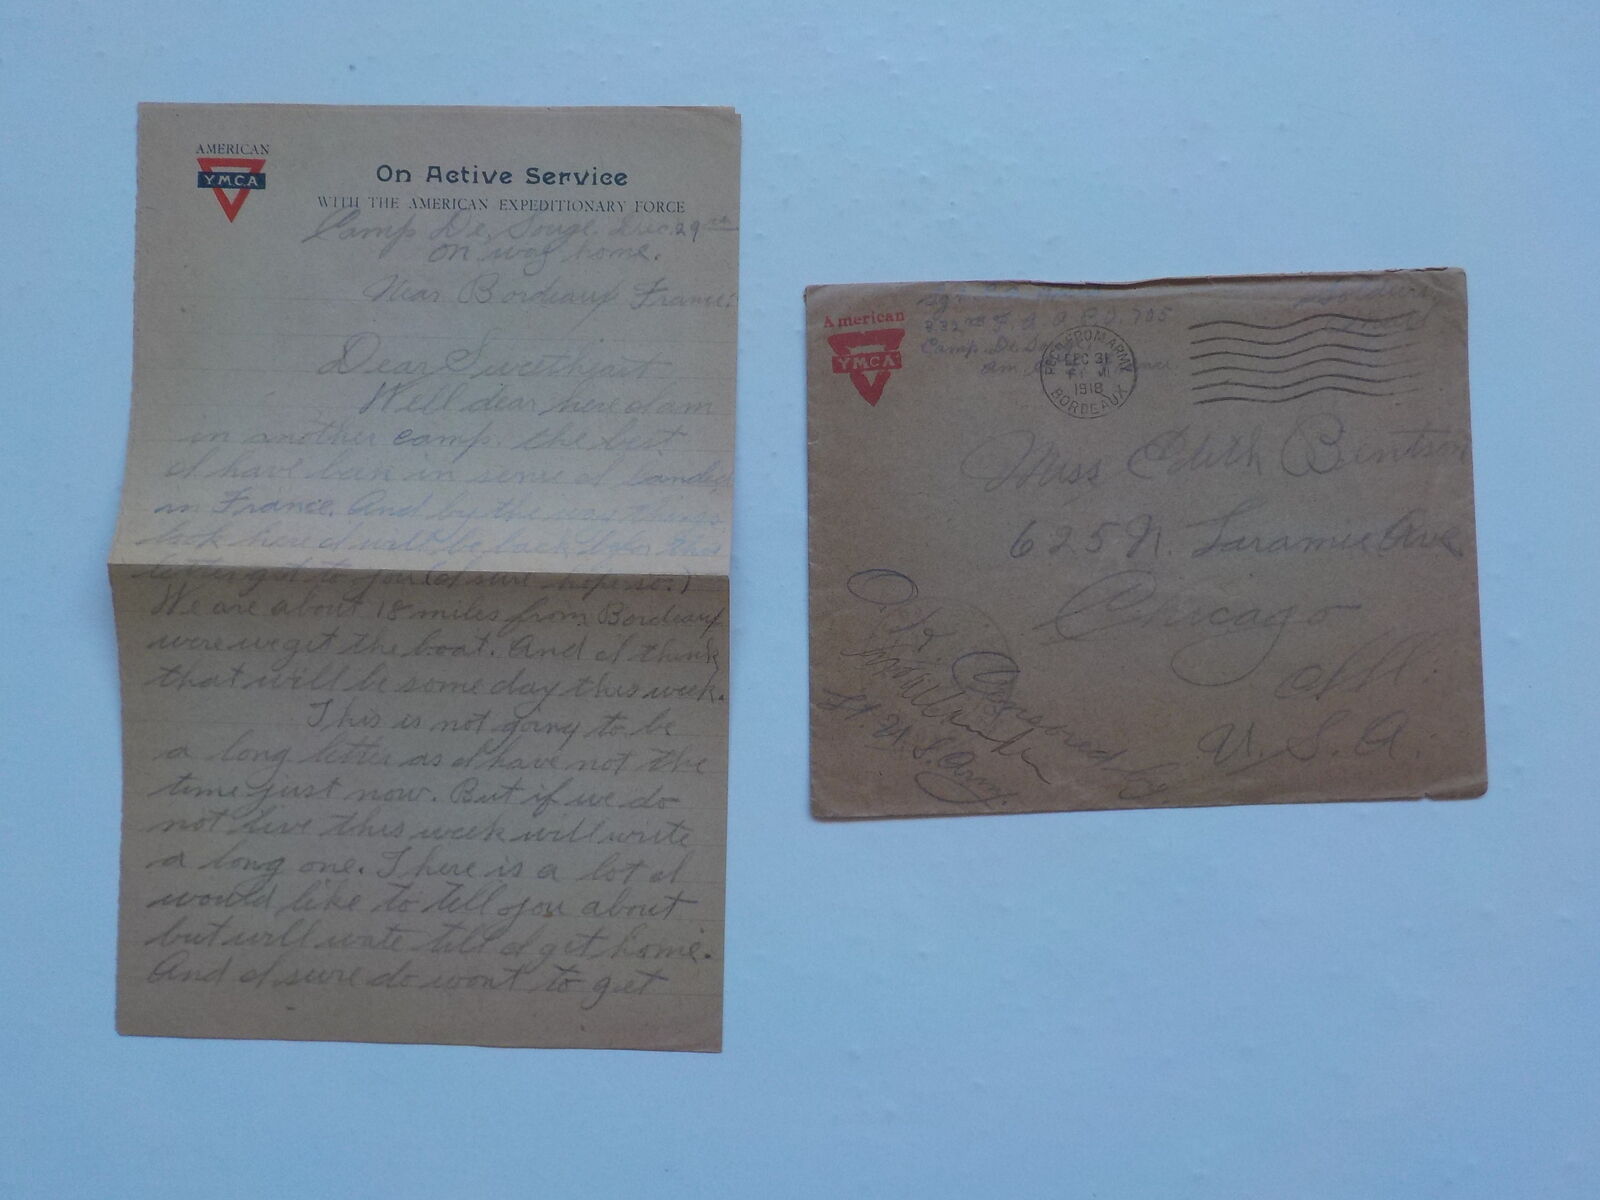 AMERICAN
YMCA
On Active Service
WITH THE AMERICAN EXPEDITIONARY FORCE
Camp De Souge. Dec. 29th
on way home.
Near Bordeaux France.
Dear Sweethart
Well dear here I am
in another camp. the best
I have ben in sense I landed
in France. And by the way things
look here I will be back befor this
letter get to you (I sure hope so.)
We are about 18 miles from Bordeaux
were we get the boat. And I think
that will be some day this week.
This is not going to be
a long letter as I have not the
time just now. But if we do
not live this week will write
a long one. There is a lot I
would like to tell you about
but will wate till I get home.
And I sure do wont to get
American
YMCA
332nd F. A. A.P.O. 705
Camp De
Am
Soldiers
Mail
DEC 31
1918
BORDEAUX
Miss Edith Bentson
625 N. Laramie Ave
Chicago
Ill.
U. S. A.
O.K. Censored by
Lt. U. S. Army.